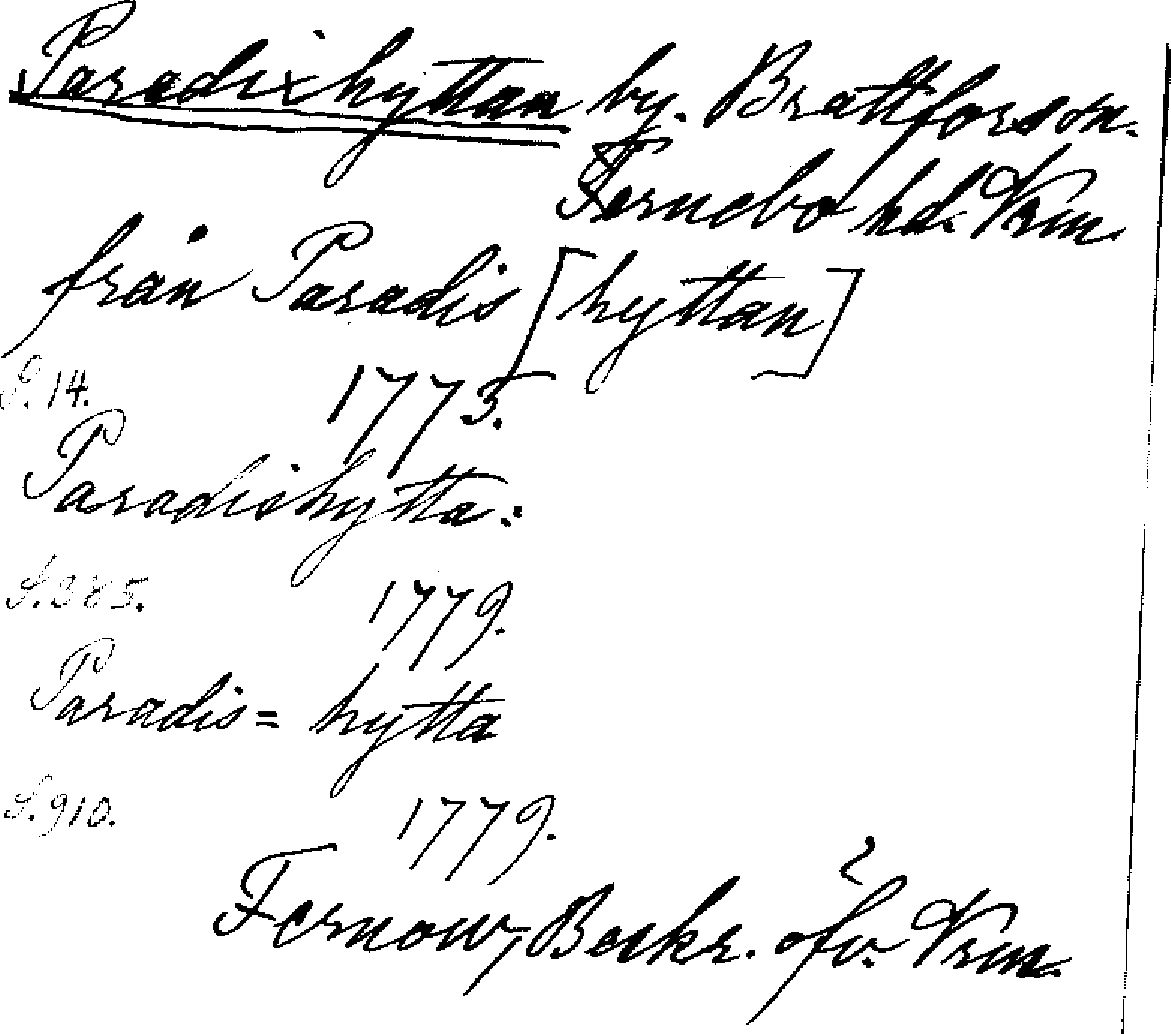 Paradixhyttan by. Brattfors sn.
Fernebo hd. Vrm.
från Paradis [hyttan]
S. 14. 1773.
Paradishytta:
S. 385. 1779.
Paradis= hytta
S. 910. 1779.
Fernow, Beskr. öfv. Vrm.